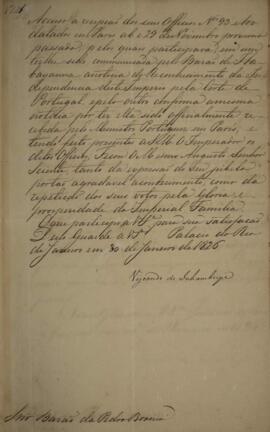 Accuso a recepção dos seus Officios Nº 93 e
datados em Paris a 6 e 29 de Novembro proximo
passado, pelos quaes participava em um
ter lhe sido communicada pelo Barão de Ita
bayanna a noticia do Reconhecimento da In
dependencia deste Imperio pela Corte de
Portugal, e pelo outro confirma a mesma
noticia por ter lhe sido officialmente re
cebida pelo Ministro Portuguez em Paris, e
tendo feito presentes a S.M. O Imperador os
ditos Officios, Ficou O Mesmo Augusto Senhor
Sciente, tanto da expressão do Seu jubilo
por tão agradavel acontecimento, como da
repetição dos seus votos pela Gloria e
prosperidade da Imperial Familia.
O que participo a V.Sª para sua satisfação
Deus Guarde a V.Sª Palacio do Rio
de Janeiro em 30 de Janeiro de 1826
Visconde de Inhambupe
Snr Barão da Pedra Branca